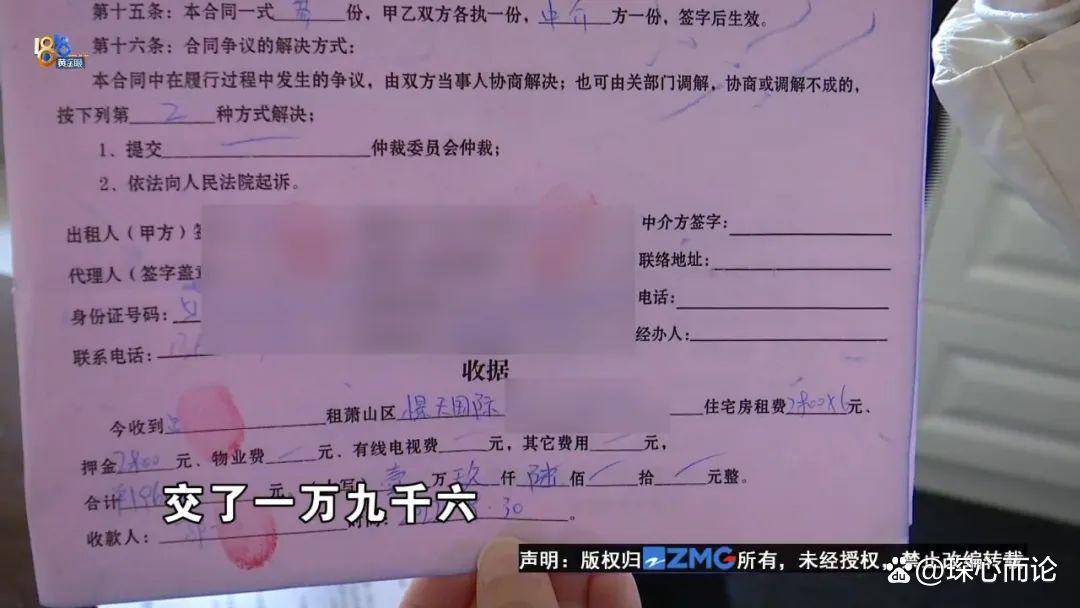 第十五条：本合同一式 份，甲乙双方各执一份，中介方一份，签字后生效。
1818
黄金眼
第十六条：合同争议的解决方式：
本合同中在履行过程中发生的争议，由双方当事人协商解决；也可由关部门调解，协商或调解不成的，
按下列第2种方式解决；
1、提交 仲裁委员会仲裁；
2、依法向人民法院起诉。
出租人（甲方）
中介方签字：
代理人（签字盖
联络地址：
身份证号码：
电话：
联系电话：
经办人：
收据
今收到 租萧山区 国际 住宅房租费2800×6元、
押金2800元、物业费 元、有线电视费 元，其它费用 元，
合计 元。 壹万玖仟陆佰 拾 元整。
交了一万九千六
收款人： 30 。
声明：版权归ZMG所有，未经授权，禁止改编转载
@珠心而论